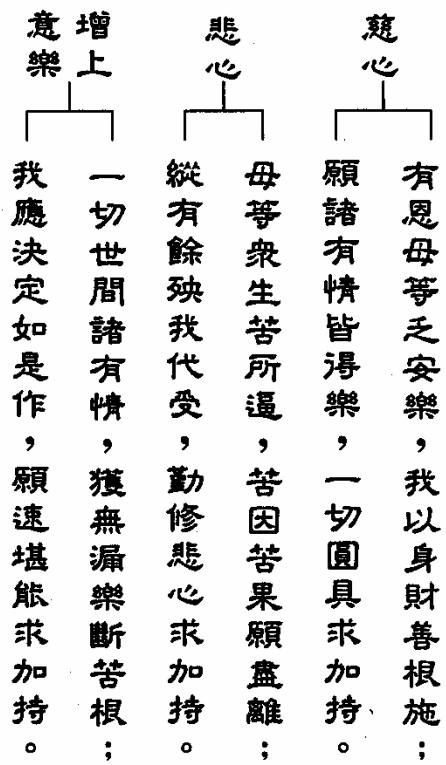 慈心
有恩母等乏安樂，我以身財善根施；
願諸有情皆得樂，一切圓具求加持。
悲心
母等眾生苦所逼，苦因苦果願盡離；
縱有餘殃我代受，勤修悲心求加持。
增上
意樂
一切世間諸有情，獲無漏樂斷苦根；
我應決定如是作，願速堪能求加持。